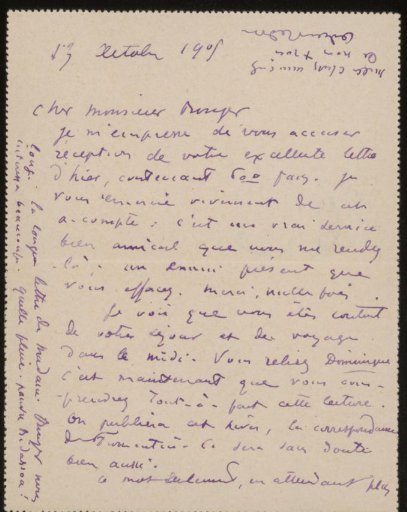 Octobre 190
Cher Monsieur
je m'empresse de vous accuser
réception de votre excellente lettre
d'hier, contenant 600 francs. Je
vous remercie vivement de cet
a-compte : c'est un vrai service
bien amical que vous me rendez
là ; un ennui présent que
vous effacez. Merci, mille fois.
Je vois que vous êtes content
de votre séjour et de voyage
dans le midi. Vous relisez Dominique
C'est maintenant que vous com-
prendrez tout-à-fait cette lecture.
On publiera cet hiver, la correspondance
de Fromentin. Ce sera sans doute
bien aussi.
Ce mot seulement, en attendant plus
long. La longue lettre de Madame nous
intéressa beaucoup. Quelle pluie. pauvre Bidassoa !